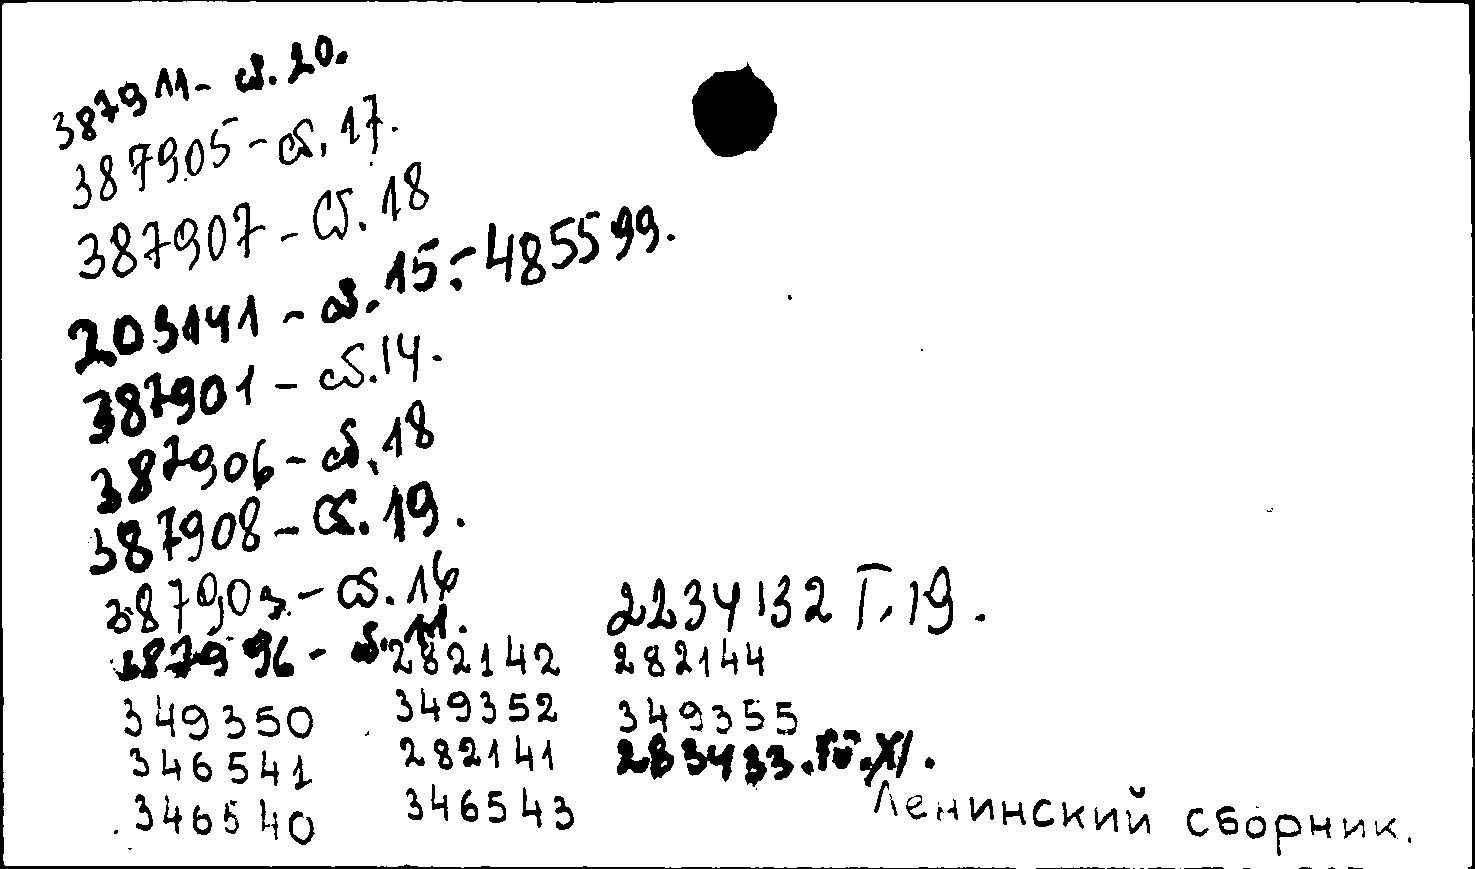 387911- сб. 20.
387905 - сб. 17.
387907 - Сб. 18
203141 - сб. 15.-485599.
387901 - сб. 14.
387906 - сб. 18
387908 - Сб. 19.
387903 - сб. 16
387996 - сб. 11.
2234132 Т. 19.
282142 282144
349350 349352 349355
346541 282141 283433
346540 346543
Ленинский сборник.